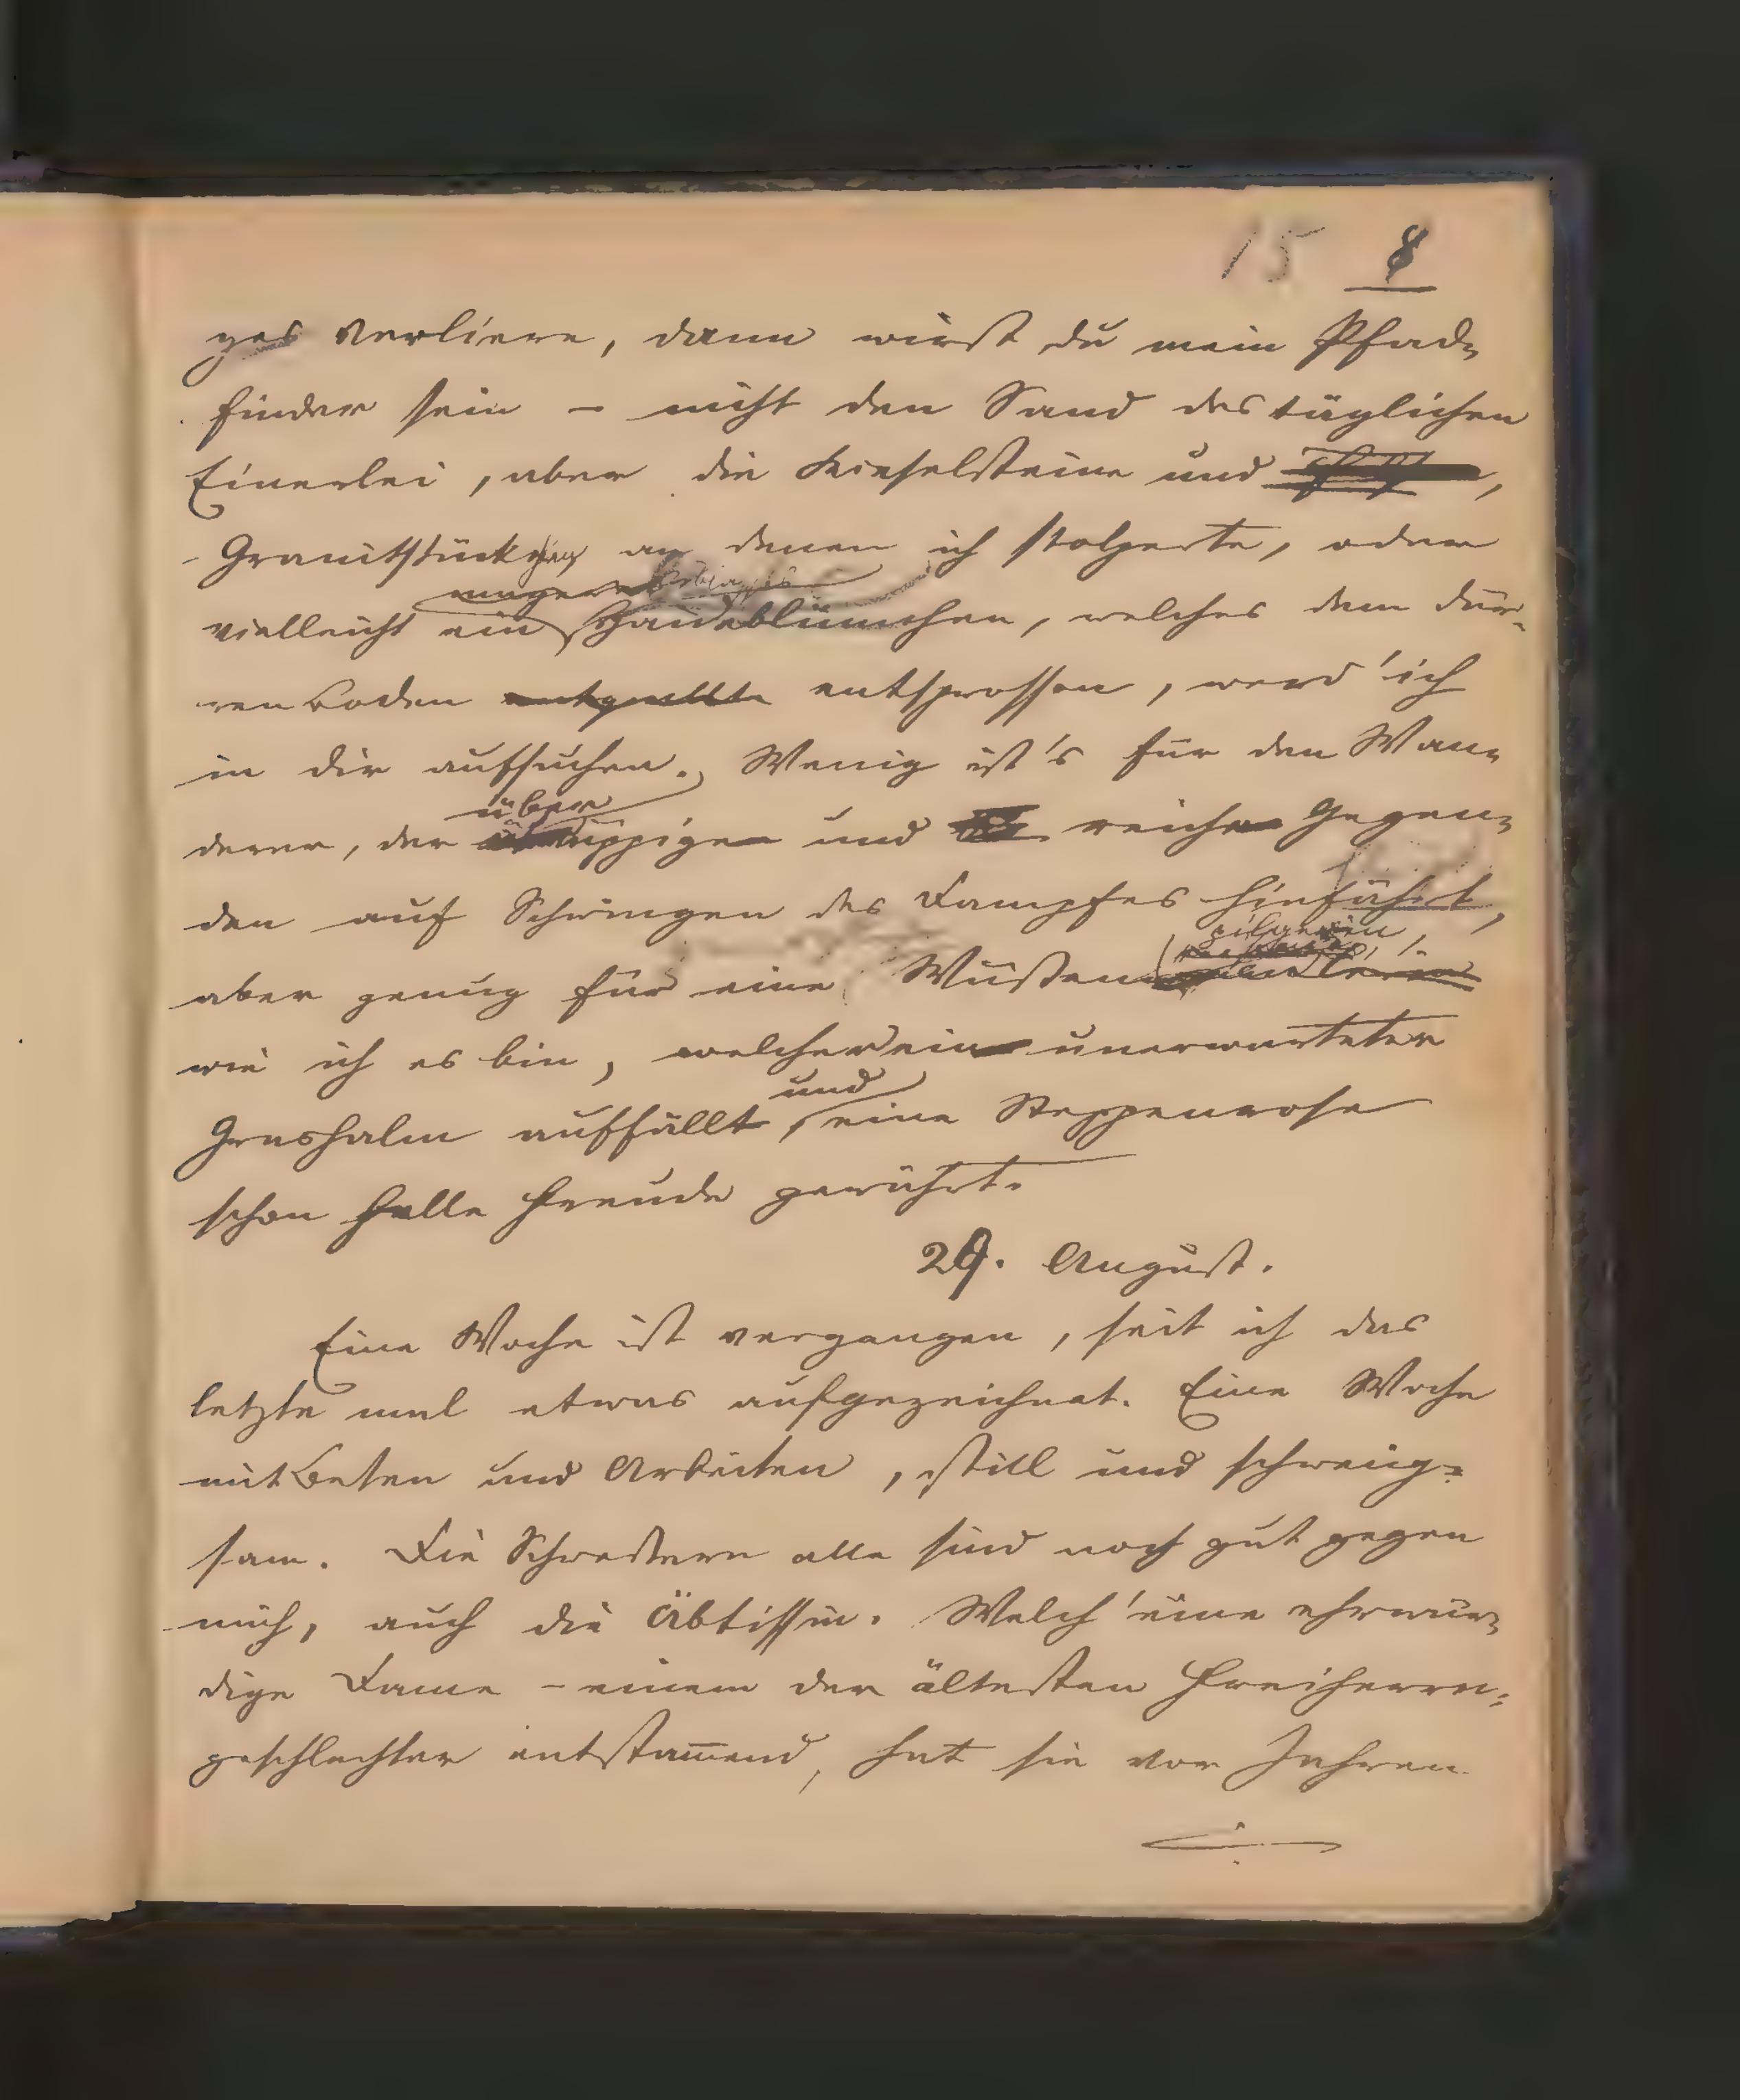 15 8
ges verliere, dann wirst du mein Pfad-
finder sein – nicht den Sand des täglichen
Einerlei, aber die Kieselsteine und ,
Granitstücke an denen ich stolperte, oder
mageres
vielleicht ein Haideblümchen, welches dem dür-
ren Boden entquellte entsprossen, werd' ich
in dir aufsuchen. Wenig ist's für den Wan-
über
derer, der üppige und reiche Gegen-
den auf Schwingen des Dampfes hinfährt,
pilgerin,
aber genug für eine Wüsten
wie ich es bin, welcher ein unerwarteter
und
Grashalm auffällt, eine Steppenrose
schon helle Freude gewährt.
29. August.
Eine Woche ist vergangen, seit ich das
letzte mal etwas aufgezeichnet. Eine Woche
mit Beten und Arbeiten, still und schweig-
sam. Die Schwestern alle sind noch gut gegen
mich, auch die Äbtissin. Welch' eine ehrwür-
dige Dame – einem der ältesten Freiherrn-
geschlechter entstam̅end, hat sie vor Jahren